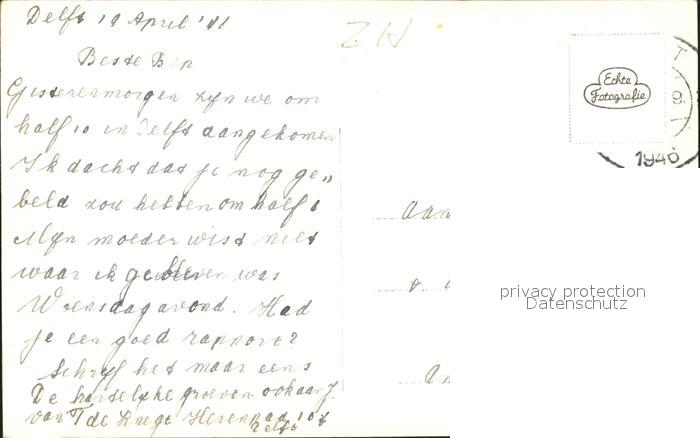 Delft 19 April '41
ZH
Beste Bep
Gisterenmorgen zijn we om
half 10 in Delft aangekomen
Ik dacht dat je nog ge„
beld zou hebben om half 1
Mijn moeder wist niet
waar ik gebleven was
Woensdagavond. Had
je een goed rapport?
Schrijf het maar eens
De hartelijke groeten ook aan J.
van T de Delft
Echte
Fotografie
T
9.
1946
Aan
A
privacy protection
Datenschutz